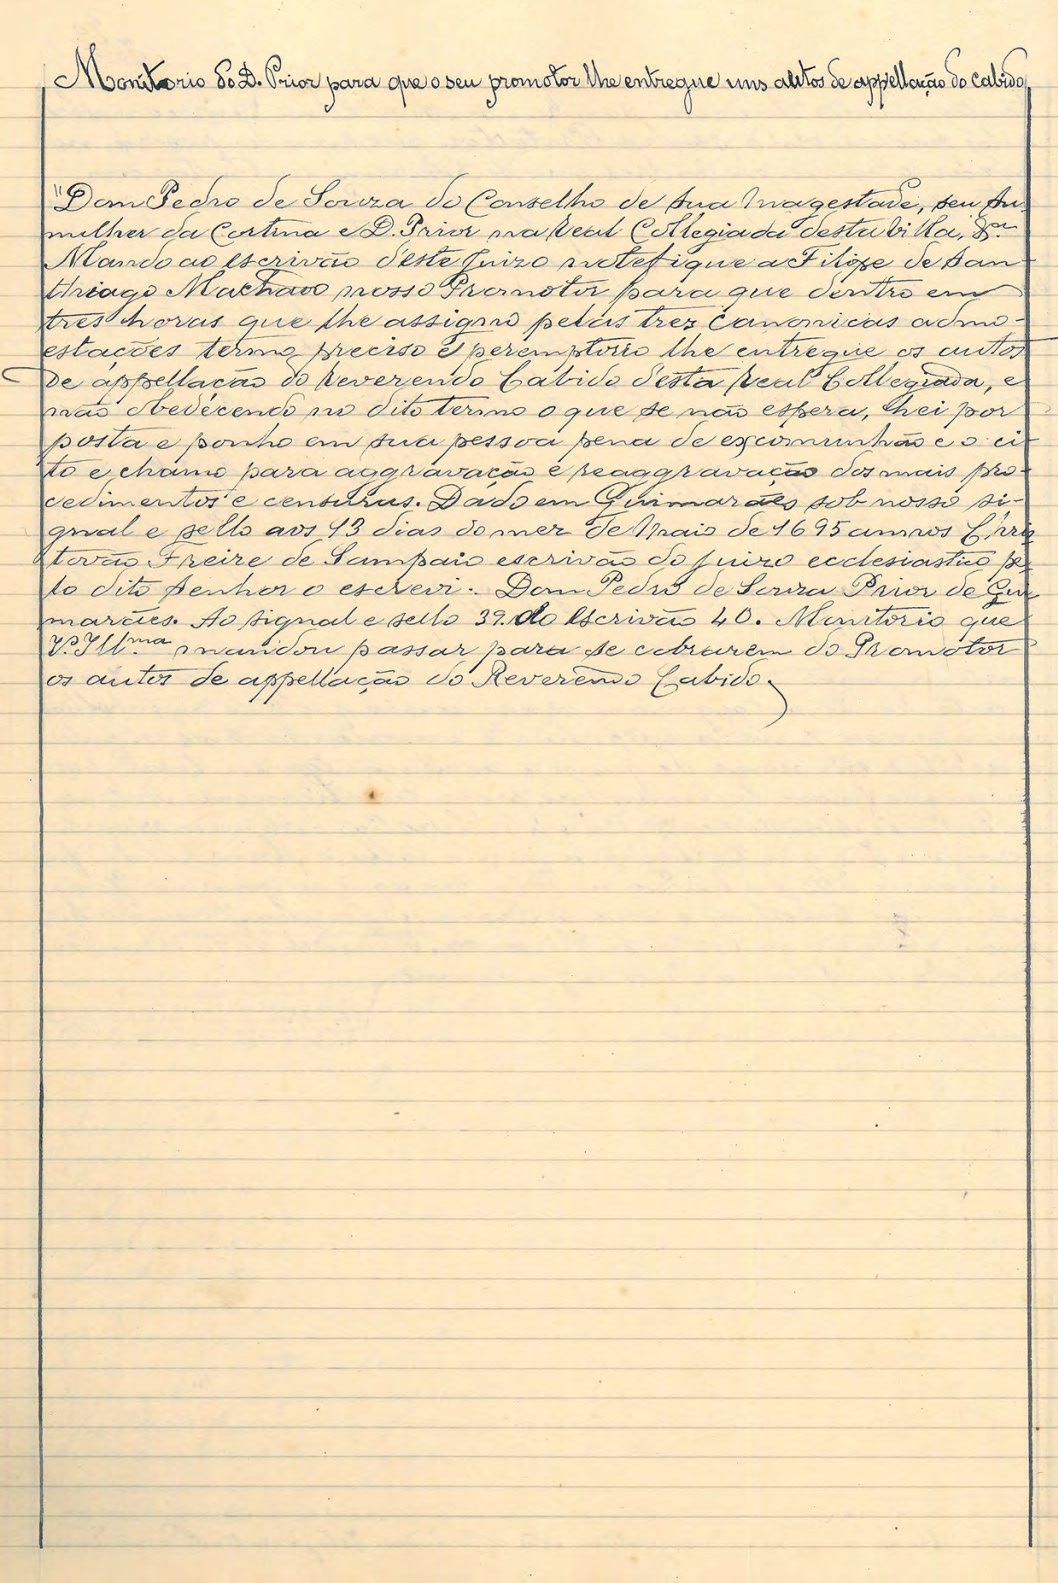 Monitorio do D. Prior para que o seu promotor lhe entregue uns autos de appellação do Cabido
"Dom Pedro de Souza do Conselho de sua Magestade, seu Su
milher da Cortina e D. Prior na Real Collegiada desta villa, &ª
Mando ao escrivão deste Juizo notefique a Filipe de San
thiago Machado nosso Promotor para que dentro em
tres horas que lhe assigno pelas trez canonicas admo-
estações termo preciso e peremptorio lhe entregue os autos
de appellação do Reverendo Cabido desta Real Collegiada, e
não obedecendo no dito termo o que se não espera, hei por
posta e ponho em sua pessoa pena de excomunhão e o ci-
to e chamo para aggravação e reaggravação dos mais pro-
cedimentos e censuras. Dado em Guimarães sob nosso si-
gnal e sello aos 13 dias do mez de Maio de 1695 annos Chris
tovão Freire de Sampaio escrivão do juizo ecclesiastico pe
lo dito senhor o escrevi. Dom Pedro de Souza Prior de Gui
marães. Ao signal e sello 39. do Escrivão 40. Monitorio que
Vª Illma mandou passar para se cobrarem do Promotor
os autos de appellação do Reverendo Cabido.